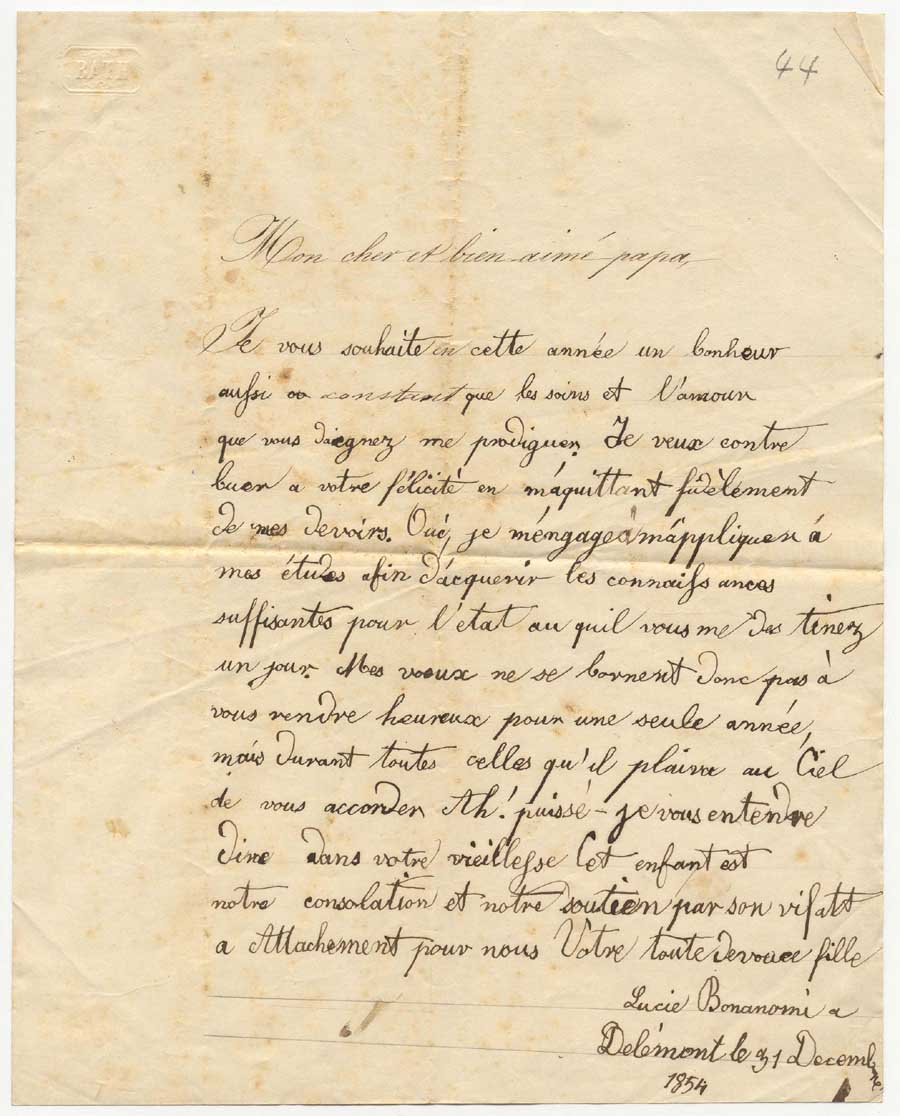 BATH
44
Mon cher et bien aimé papa,
Je vous souhaite en cette année un bonheur
aussi constant que les soins et l'amour
que vous daiegnez me prodiguer. Je veux contre
buer a votre félicité en m'aquittant fidèlement
de mes devoirs. Oui, je m'engage à m'appliquer á
mes études afin d'acquerir les connaissances
suffisantes pour l'état au quil vous me des tinez
un jour. Mes voeux ne se bornent donc pas à
vous rendre heureux pour une seule année,
mais durant toutes celles qu'il plaira au Ciel
de vous accorder Ah! puissé-je vous entendre
dire dans votre vieillesse Cet enfant est
notre consolation et notre soutien par son vif att
a Attachement pour nous Vôtre toute devouee fille
Lucie Bonanomi a
Delémont le 31 Decembre
1854